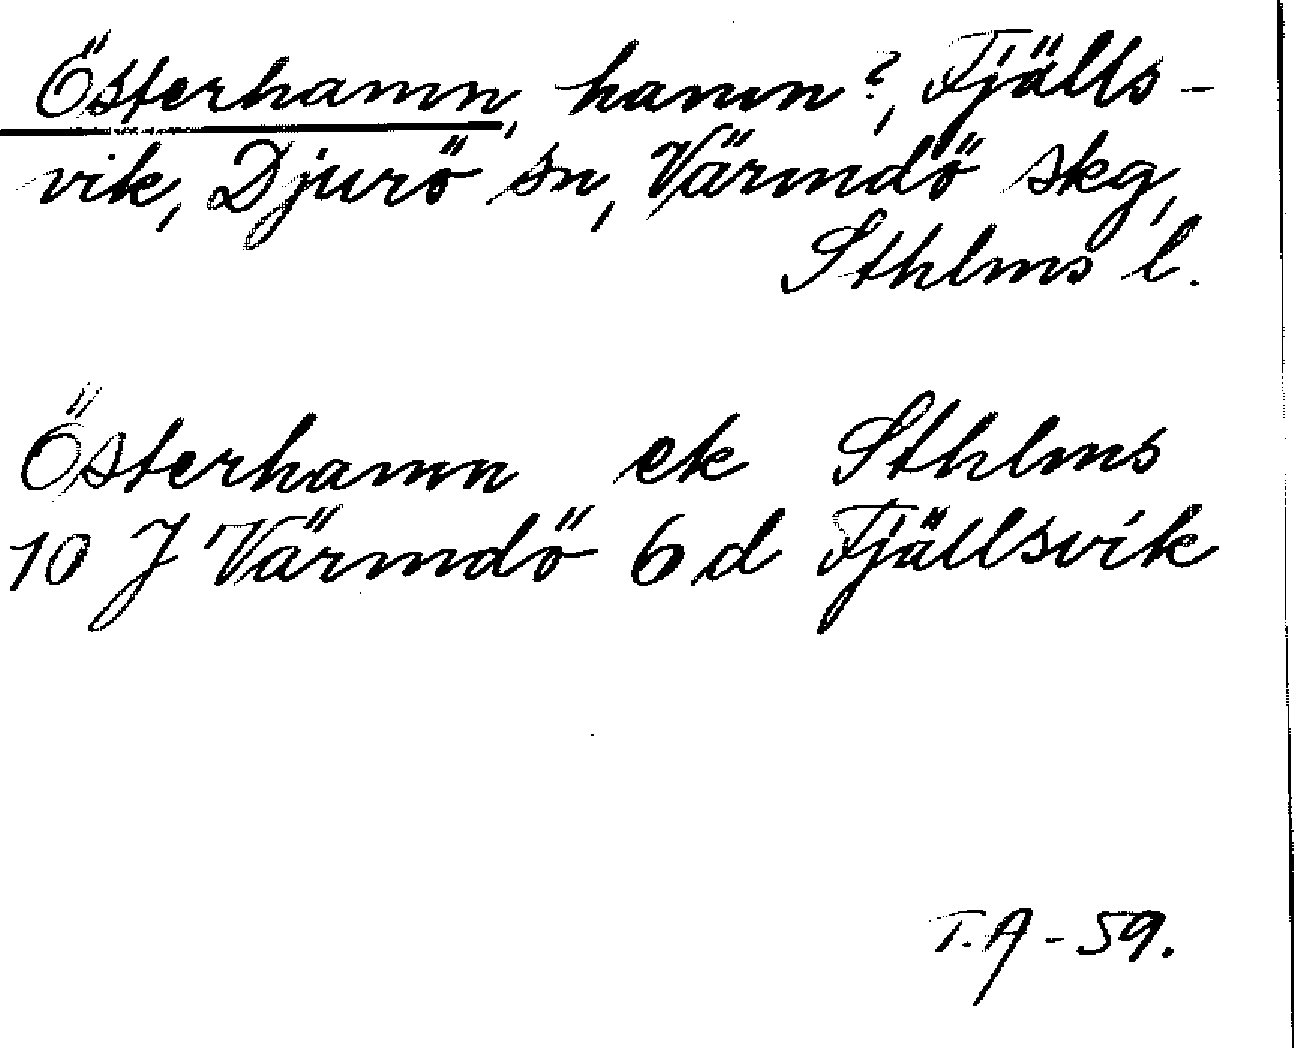 Österhamn, hamn?, Fjälls-
vik, Djurö sn, Värmdö skg,
Sthlms l.
Österhamn ek Sthlms
10 J Värmdö 6 d Fjällsvik
T.A-59.